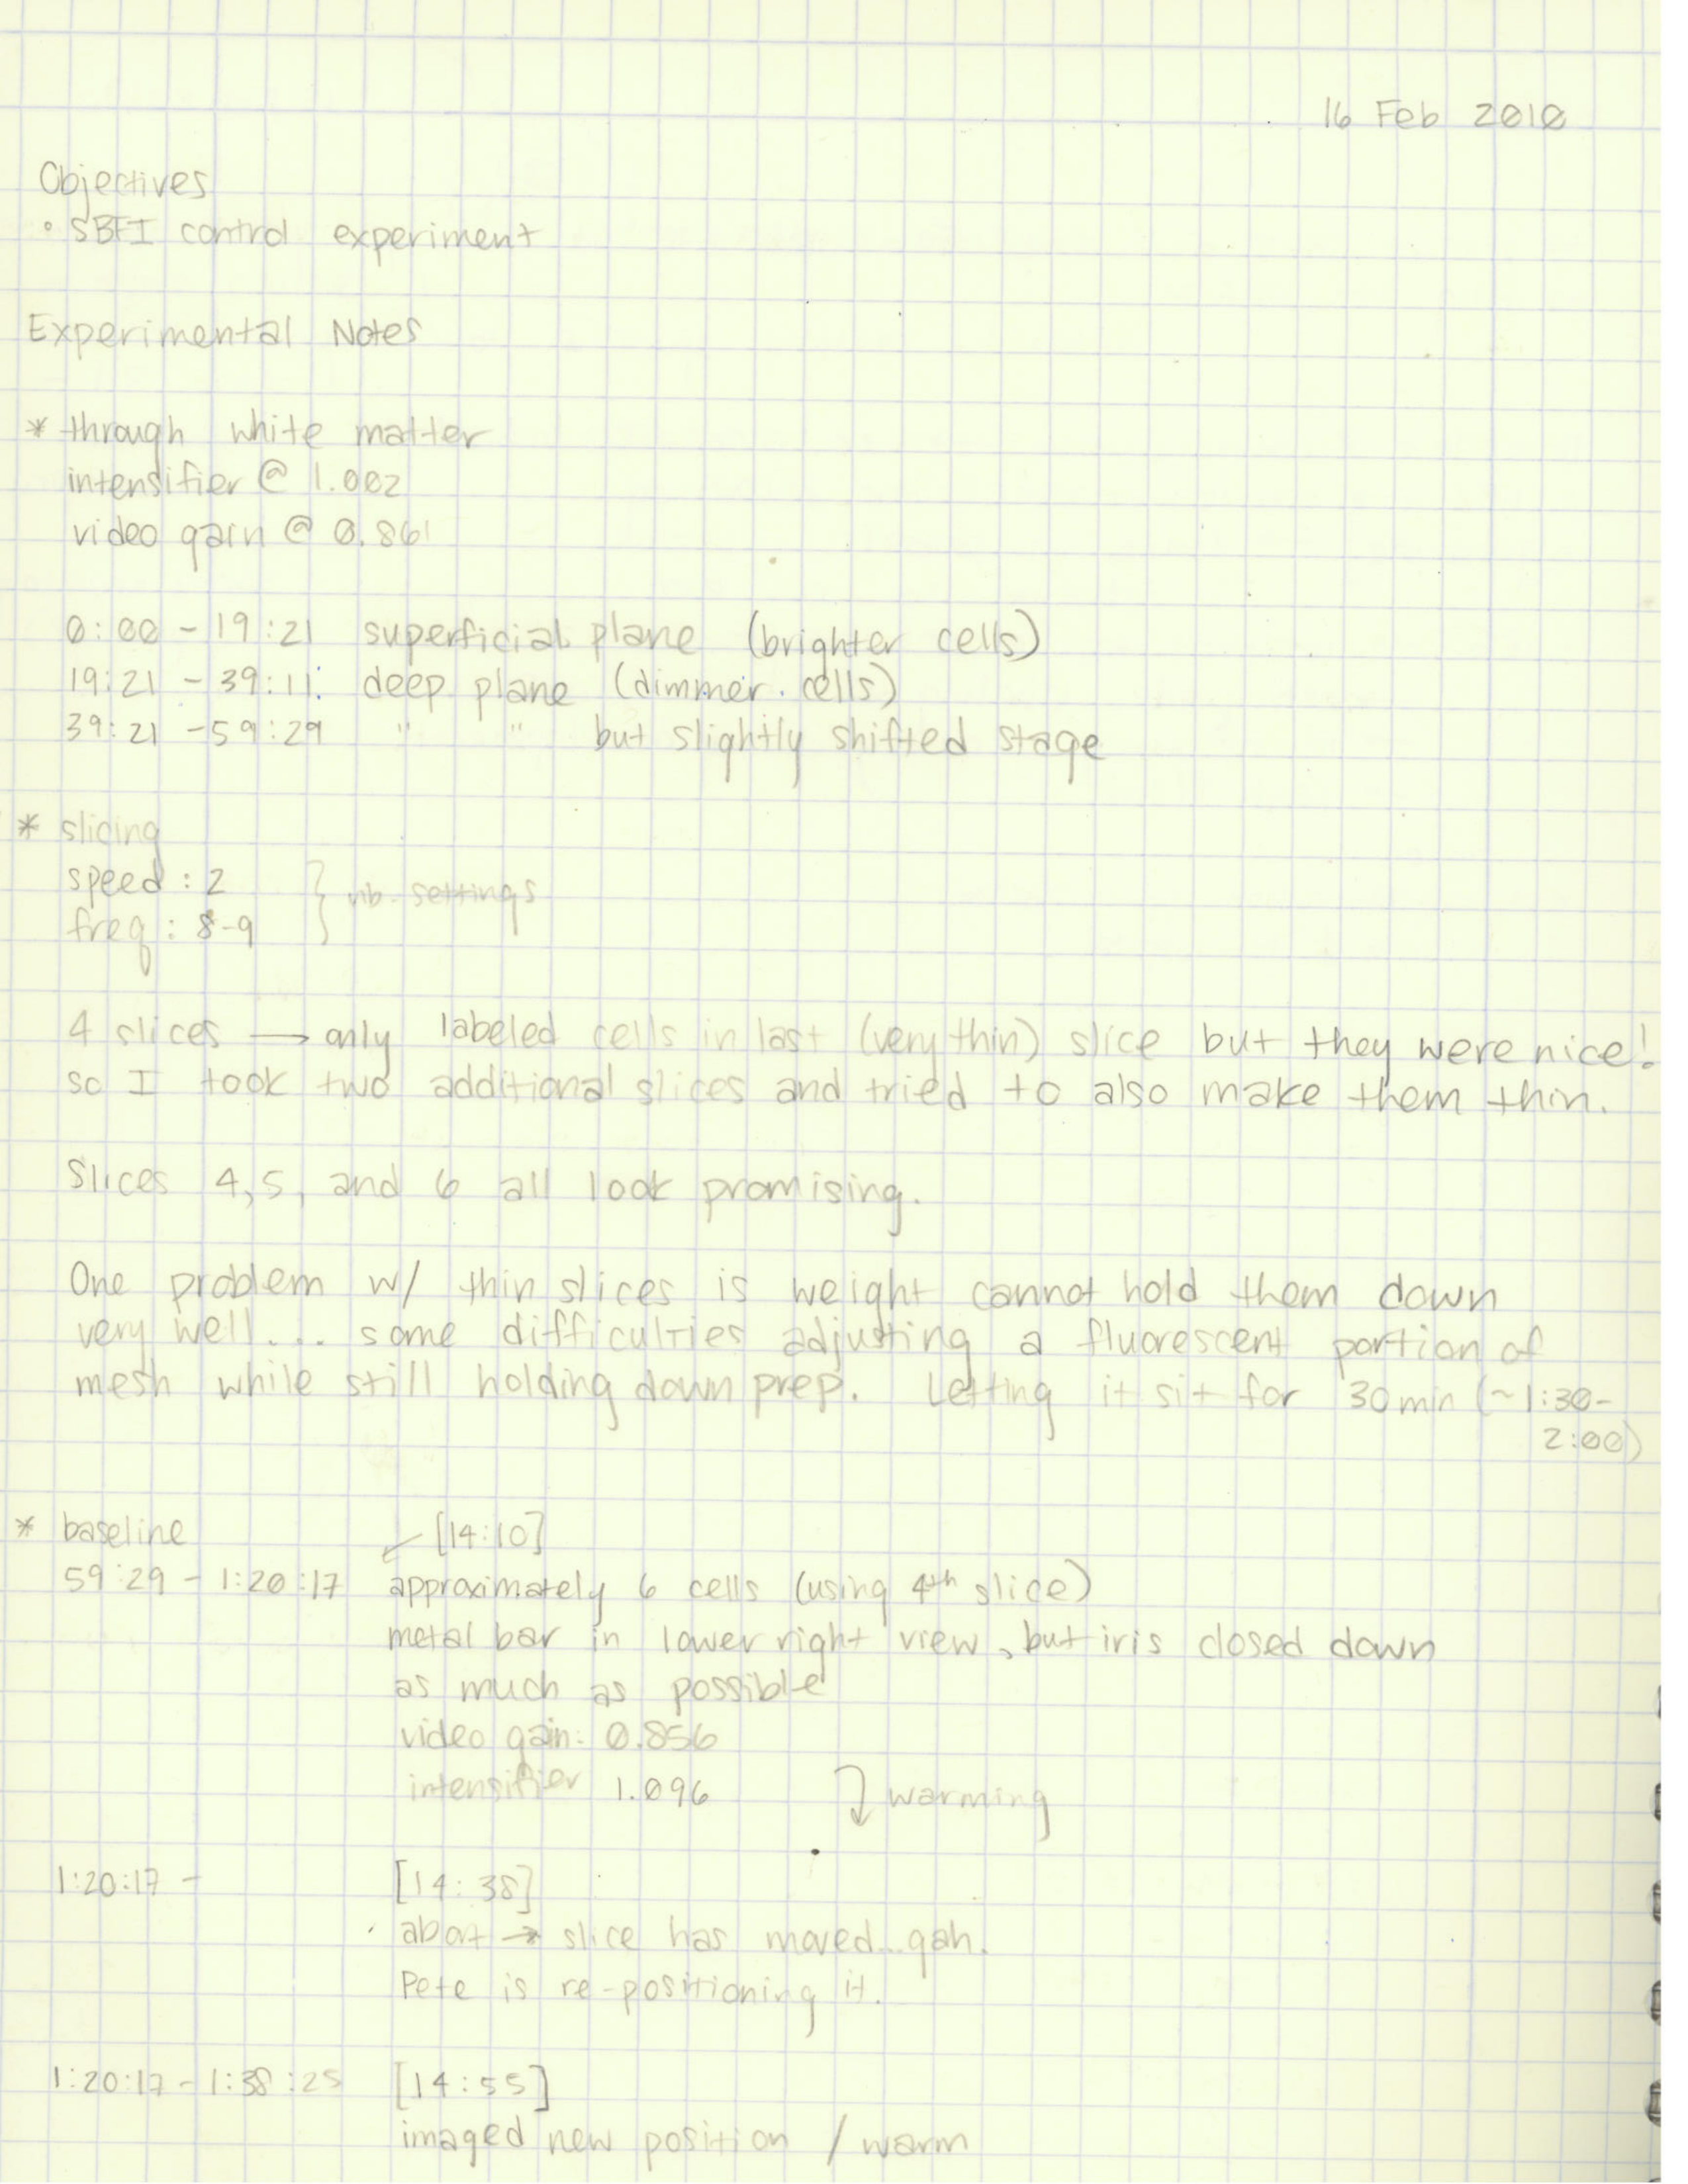 16 Feb 2010
Objectives
• SBFI control experiment
Experimental Notes
* through white matter
intensifier @ 1.002
video gain @ 0.861
0:00 - 19:21 superficial plane (brighter cells)
19:21 - 39:11: deep plane (dimmer cells)
39:21 - 59:29 " " but slightly shifted stage
* slicing
speed : 2
freq : 8-9 } vib. settings
4 slices → only labeled cells in last (very thin) slice but they were nice!
so I took two additional slices and tried to also make them thin.
Slices 4, 5, and 6 all look promising.
One problem w/ thin slices is weight cannot hold them down
very well... some difficulties adjusting a fluorescent portion of
mesh while still holding down prep. Letting it sit for 30 min (~1:30-
2:00)
* baseline ↙ [14:10]
59:29 - 1:20:17 approximately 6 cells (using 4th slice)
metal bar in lower right view, but iris closed down
as much as possible
video gain: 0.856
intensifier 1.096 warming
1:20:17 - [14:38]
abort → slice has moved...gah.
Pete is re-positioning it.
1:20:17 - 1:38:25 [14:55]
imaged new position / warm